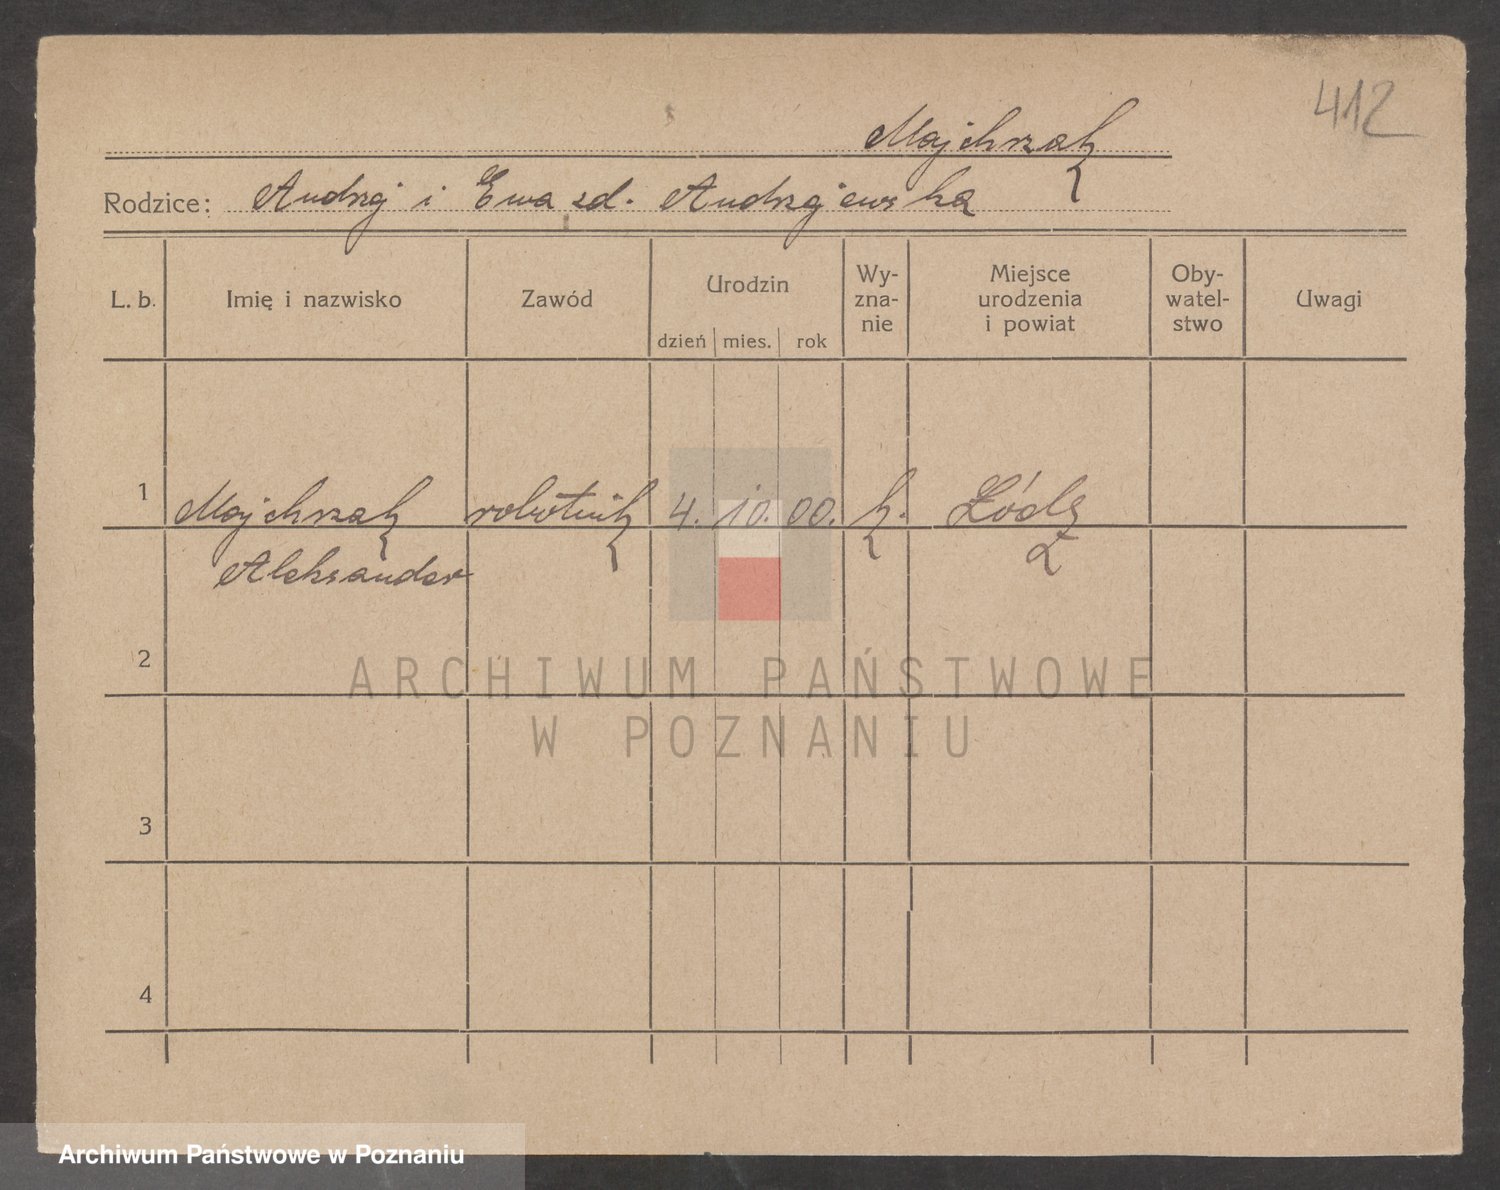 412
Majchrzak
Rodzice: Andrzej i Ewa zd. Andrzejewska
L. b. Imię i nazwisko Zawód Urodzin dzień mies. rok Wy-zna-nie Miejsce urodzenia i powiat Oby-watel-stwo Uwagi
1 Majchrzak robotnik 4. 10. 00. k. Łódź
Aleksander
2
ARCHIWUM PAŃSTWOWE
W POZNANIU
3
4
Archiwum Państwowe w Poznaniu